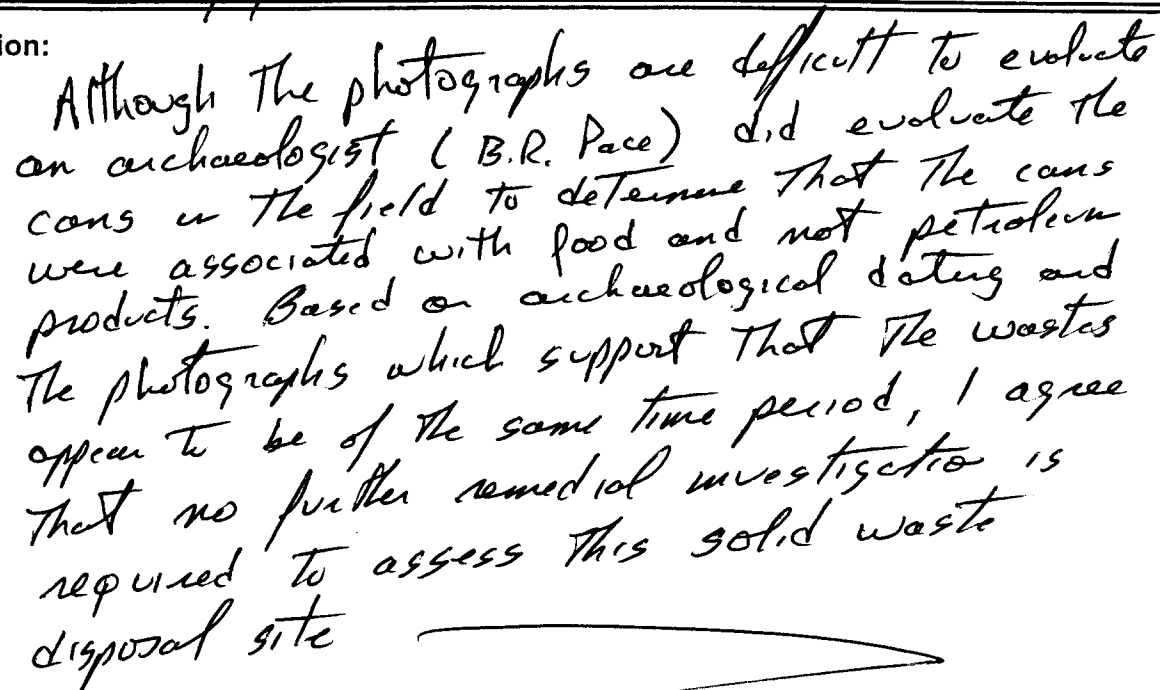 ion:
Although the photographs are difficult to evaluate
an archaeologist (B.R. Pace) did evaluate the
cans in the field to determine that the cans
were associated with food and not petroleum
products. Based on archaeological dating and
the photographs which support that the wastes
appear to be of the same time period, I agree
that no further remedial investigation is
required to assess this solid waste
disposal site